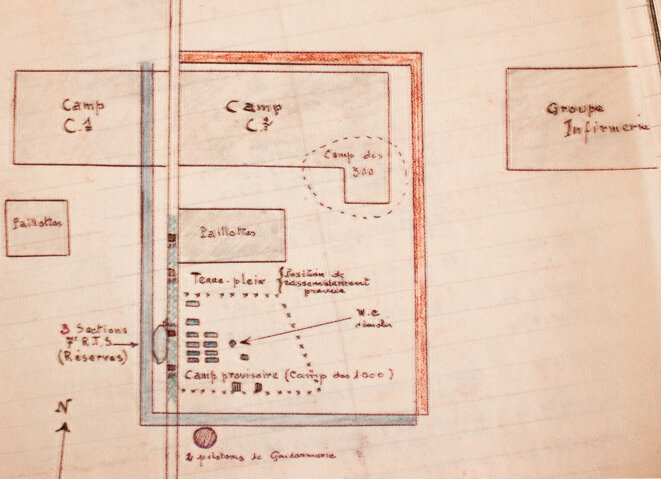 Camp
C.1
Camp
C.2
Groupe
Infirmerie
Camp des
300
Paillottes
Paillottes
Terre-plein
Position de
rassemblement
prévue
W.C
témoin
3 Sections
7e R.T.S
(Réserves)
Camp provisoire (Camp des 1000)
N
2 pelotons de Gendarmerie